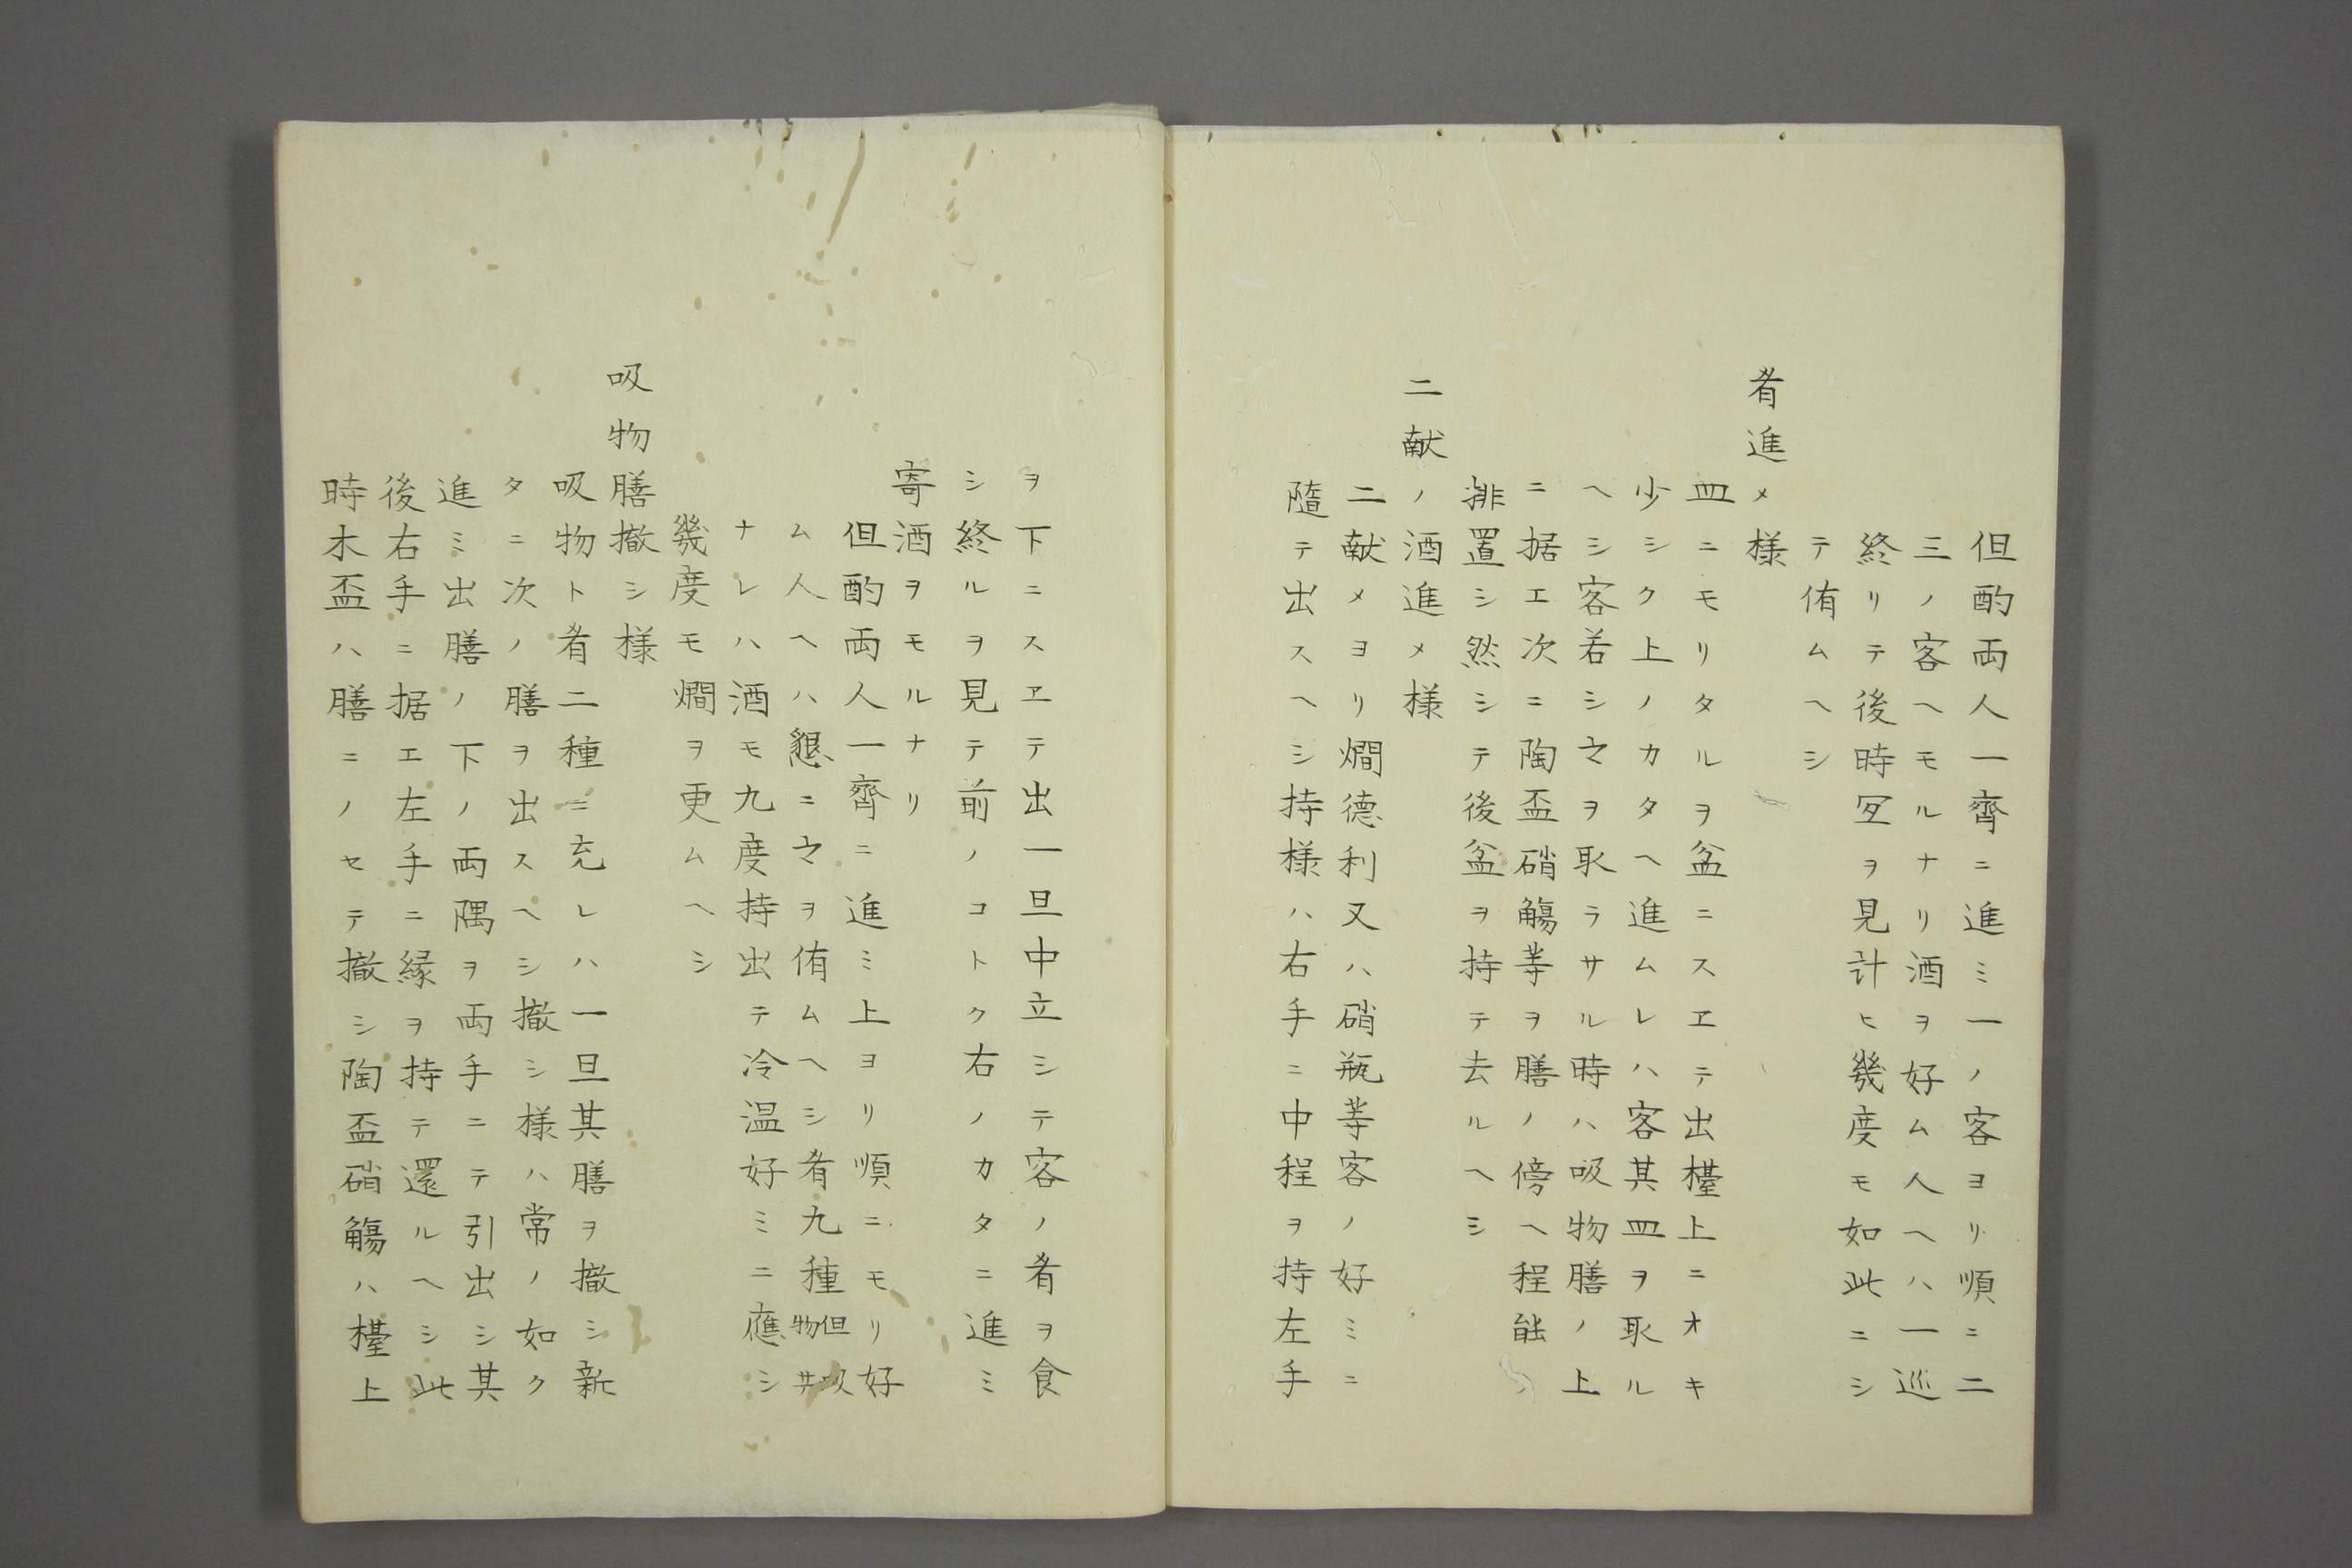 但酌両人一齊ニ進ミ一ノ客ヨリ順ニ二
三ノ客ヘモルナリ酒ヲ好ム人ヘハ一巡
終リテ後時宜ヲ見計ヒ幾度モ如此ニシ
テ侑ムヘシ
肴進メ様
皿ニモリタルヲ盆ニスヱテ出檯上ニオキ
少シク上ノカタヘ進ムレハ客其皿ヲ取ル
ヘシ客若シ之ヲ取ラサル時ハ吸物膳ノ上
ニ据エ次ニ陶盃硝觴等ヲ膳ノ傍ヘ程能
排置シ然シテ後盆ヲ持テ去ルヘシ
二献ノ酒進メ様
二献メヨリ燗徳利又ハ硝瓶等客ノ好ミニ
隨テ出スヘシ持様ハ右手ニ中程ヲ持左手
ヲ下ニスヱテ出一旦中立シテ客ノ肴ヲ食
シ終ルヲ見テ前ノコトク右ノカタニ進ミ
寄酒ヲモルナリ
但酌両人一齊ニ進ミ上ヨリ順ニモリ好
ム人ヘハ懇ニ之ヲ侑ムヘシ肴九種但吸物共
ナレハ酒モ九度持出テ冷温好ミニ應シ
幾度モ燗ヲ更ムヘシ
吸物膳撤シ様
吸物ト肴二種ニ充レハ一旦其膳ヲ撤シ新
タニ次ノ膳ヲ出スヘシ撤シ様ハ常ノ如ク
進ミ出膳ノ下ノ両隅ヲ両手ニテ引出シ其
後右手ニ据エ左手ニ縁ヲ持テ還ルヘシ此
時木盃ハ膳ニノセテ撤シ陶盃硝觴ハ檯上